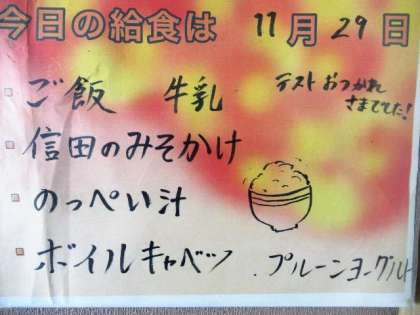 今日の給食は 11月29日
ご飯 牛乳
テストおつかれ
さまでした!
信田のみそかけ
のっぺい汁
ボイルキャベツ
プルーンヨーグルト